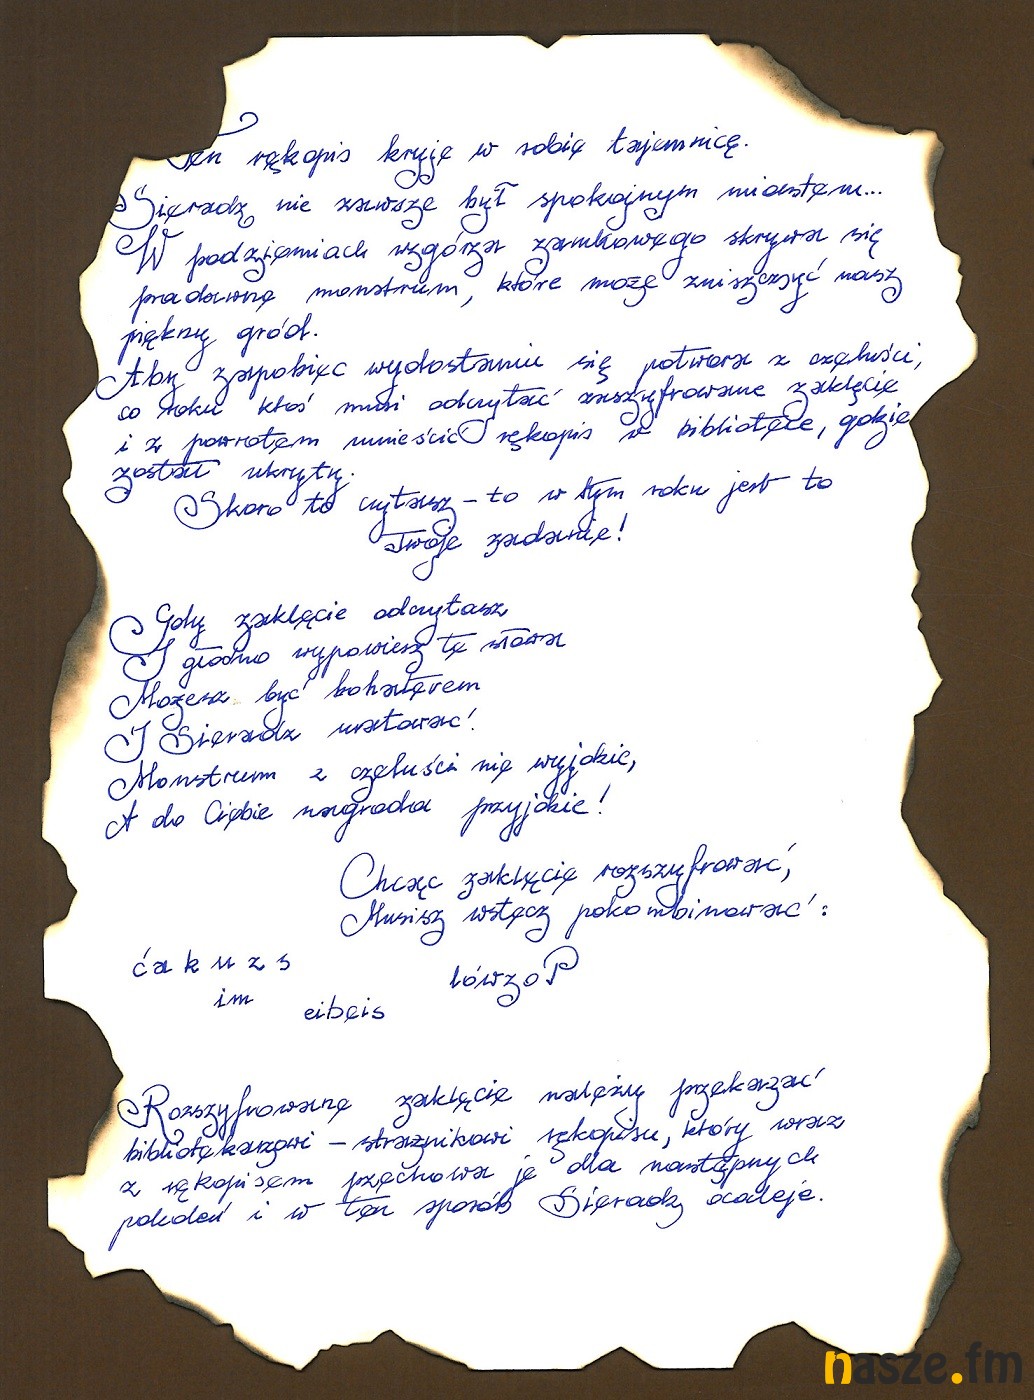 Ten rękopis kryje w sobie tajemnicę.
Sieradz nie zawsze był spokojnym miastem...
W podziemiach wzgórza zamkowego skrywa się
pradawne monstrum, które może zniszczyć nasz
piękny gród.
Aby zapobiec wydostaniu się potwora z czeluści,
co roku ktoś musi odczytać zaszyfrowane zaklęcie
i z powrotem umieścić rękopis w bibliotece, gdzie
został ukryty.
Skoro to czytasz - to w tym roku jest to
Twoje zadanie!
Gdy zaklęcie odczytasz
I głośno wypowiesz te słowa
Możesz być bohaterem
I Sieradz uratować!
Monstrum z czeluści nie wyjdzie,
A do Ciebie nagroda przyjdzie!
Chcąc zaklęcie rozszyfrować,
Musisz wstecz pokombinować:
ćakuzs
lówzoP
im
eibeis
Rozszyfrowane zaklęcie należy przekazać
bibliotekarzowi - strażnikowi rękopisu, który wraz
z rękopisem przechowa je dla następnych
pokoleń i w ten sposób Sieradz ocaleje.
nasze.fm